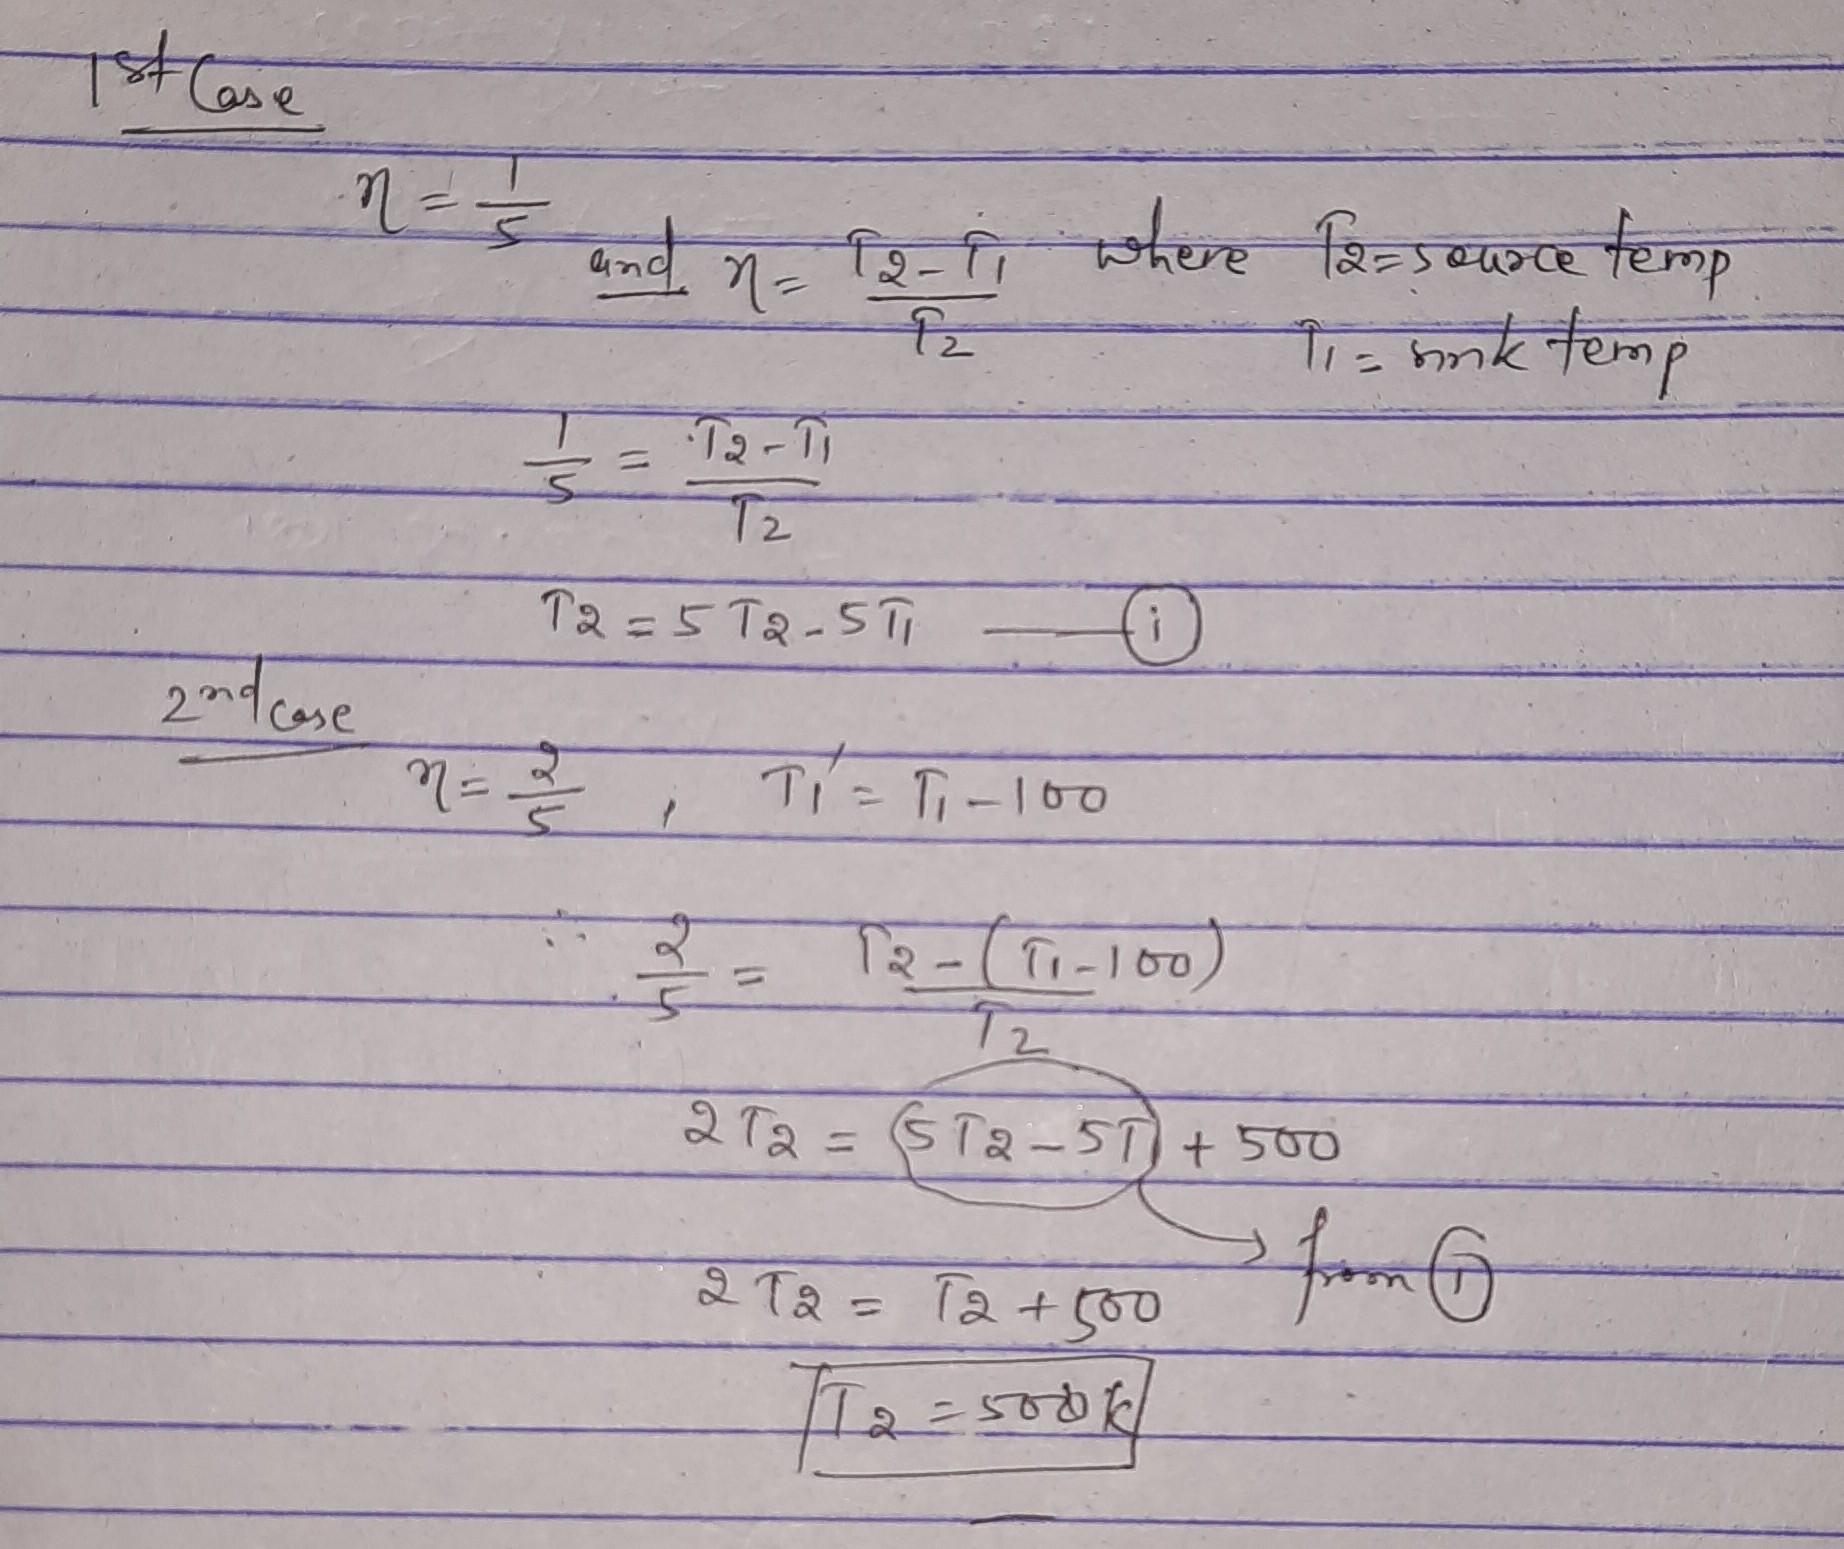 1st Case
η = 1/5
and η = (T2 - T1)/T2 where T2 = source temp
T1 = sink temp
1/5 = (T2 - T1)/T2
T2 = 5T2 - 5T1 — (i)
2nd case
η = 2/5 , T1' = T1 - 100
∴ 2/5 = (T2 - (T1 - 100))/T2
2T2 = (5T2 - 5T1) + 500
→ from (i)
2T2 = T2 + 500
T2 = 500 K